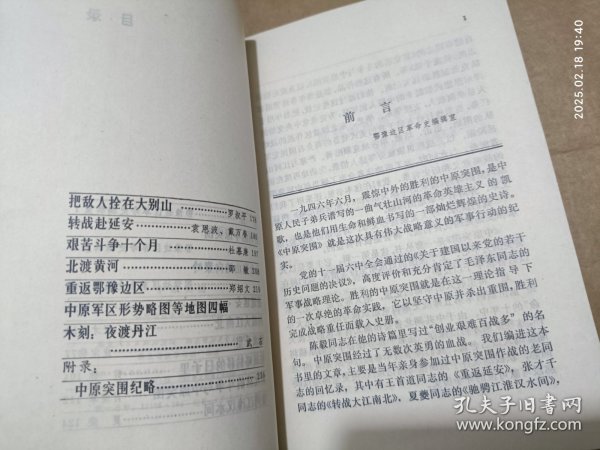 目录
把敌人拴在大别山 罗叔平
转战赴延安 袁思波、戴万春
艰苦斗争十个月
北渡黄河
重返鄂豫边区 郑翔文
中原军区形势略图等地图四幅
木刻：夜渡丹江
武石
附录：
中原突围纪略
3
前言
鄂豫边区革命史编辑室
一九四六年六月，震惊中外的胜利的中原突围，是中
原人民子弟兵谱写的一曲气壮山河的革命英雄主义的凯
歌，也是他们用生命和鲜血书写的一部灿烂辉煌的史诗。
《中原突围》就是这次具有伟大战略意义的军事行动的纪
实。
党的十一届六中全会通过的《关于建国以来党的若干
历史问题的决议》，高度评价和充分肯定了毛泽东同志的
军事战略理论。胜利的中原突围就是在这一理论指导下
的一次卓绝的革命实践，它以坚守中原并杀出重围，胜利
完成战略重任而载入史册。
陈毅同志在他的诗篇里写过“创业艰难百战多”的名
句。中原突围经过了无数次英勇的血战。我们编进这本
书里的文章，主要是当年亲身参加过中原突围作战的老同
志的回忆录，其中有王首道同志的《重返延安》，张才千
同志的《转战大江南北》，夏夔同志的《驰骋江淮汉水间》，
2025.02.18 19:40
孔夫子旧书网
www.kongfz.com